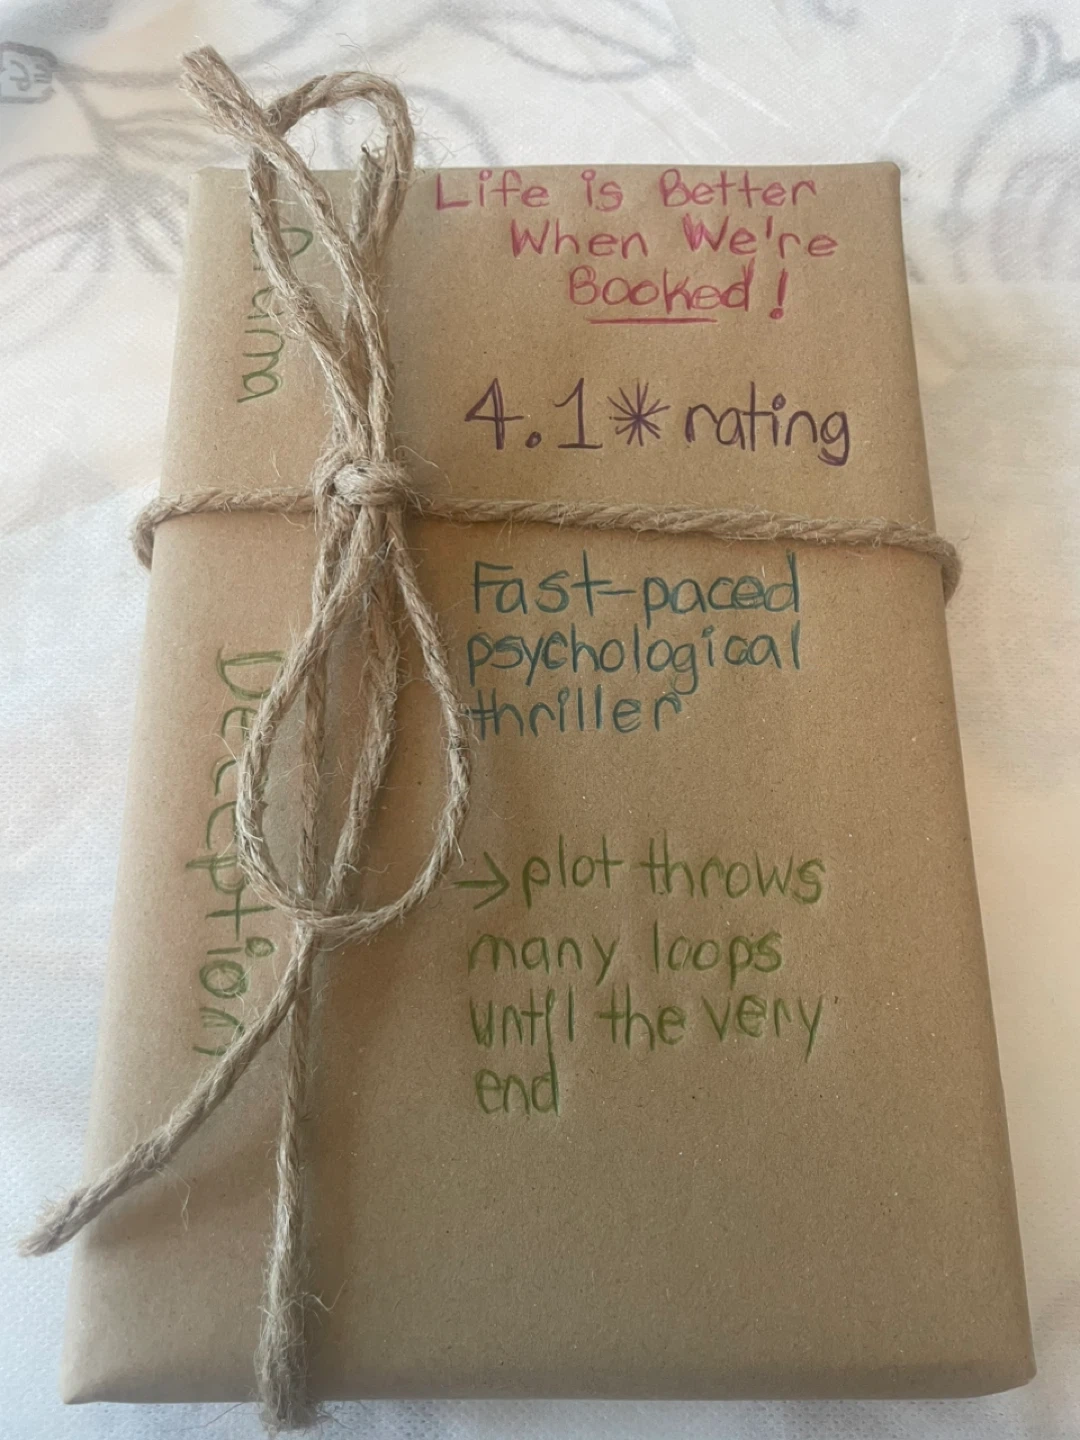 Life is Better
When We're
Booked!
4.1* rating
Fast-paced
psychological
thriller
→plot throws
many loops
until the very
end
Drama
Deception